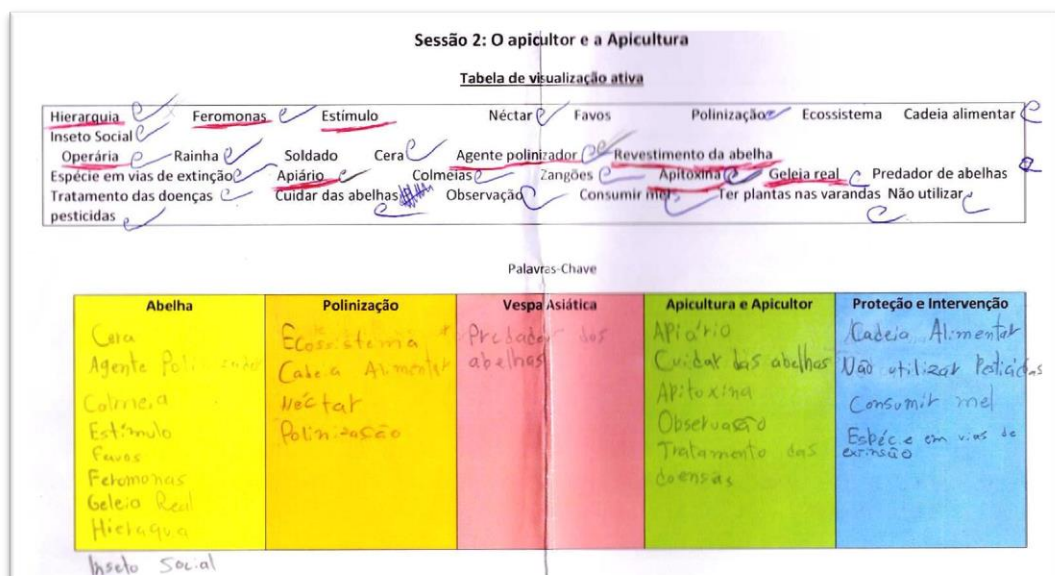 Sessão 2: O apicultor e a Apicultura
Tabela de visualização ativa
Hierarquia Feromonas Estímulo Néctar Favos Polinização Ecossistema Cadeia alimentar
Inseto Social
Operária Rainha Soldado Cera Agente polinizador Revestimento da abelha
Espécie em vias de extinção Apiário Colmeias Zangões Apitoxina Geleia real Predador de abelhas
Tratamento das doenças Cuidar das abelhas Observação Consumir mel Ter plantas nas varandas Não utilizar
pesticidas
Palavras-Chave
Abelha Polinização Vespa Asiática Apicultura e Apicultor Proteção e Intervenção
Cera
Agente Polinizador
Colmeia
Estímulo
Favos
Feromonas
Geleia Real
Hieraquia
Inseto Social
Ecossistema
Cadeia Alimentar
Néctar
Polinisação
Predador das
abelhas
APiário
Cuidar das abelhas
Apitoxina
Observação
Tratamento das
doensas
Cadeia Alimentar
Não utilizar Pesticidas
Consumir mel
Espécie em vias de
extinsão